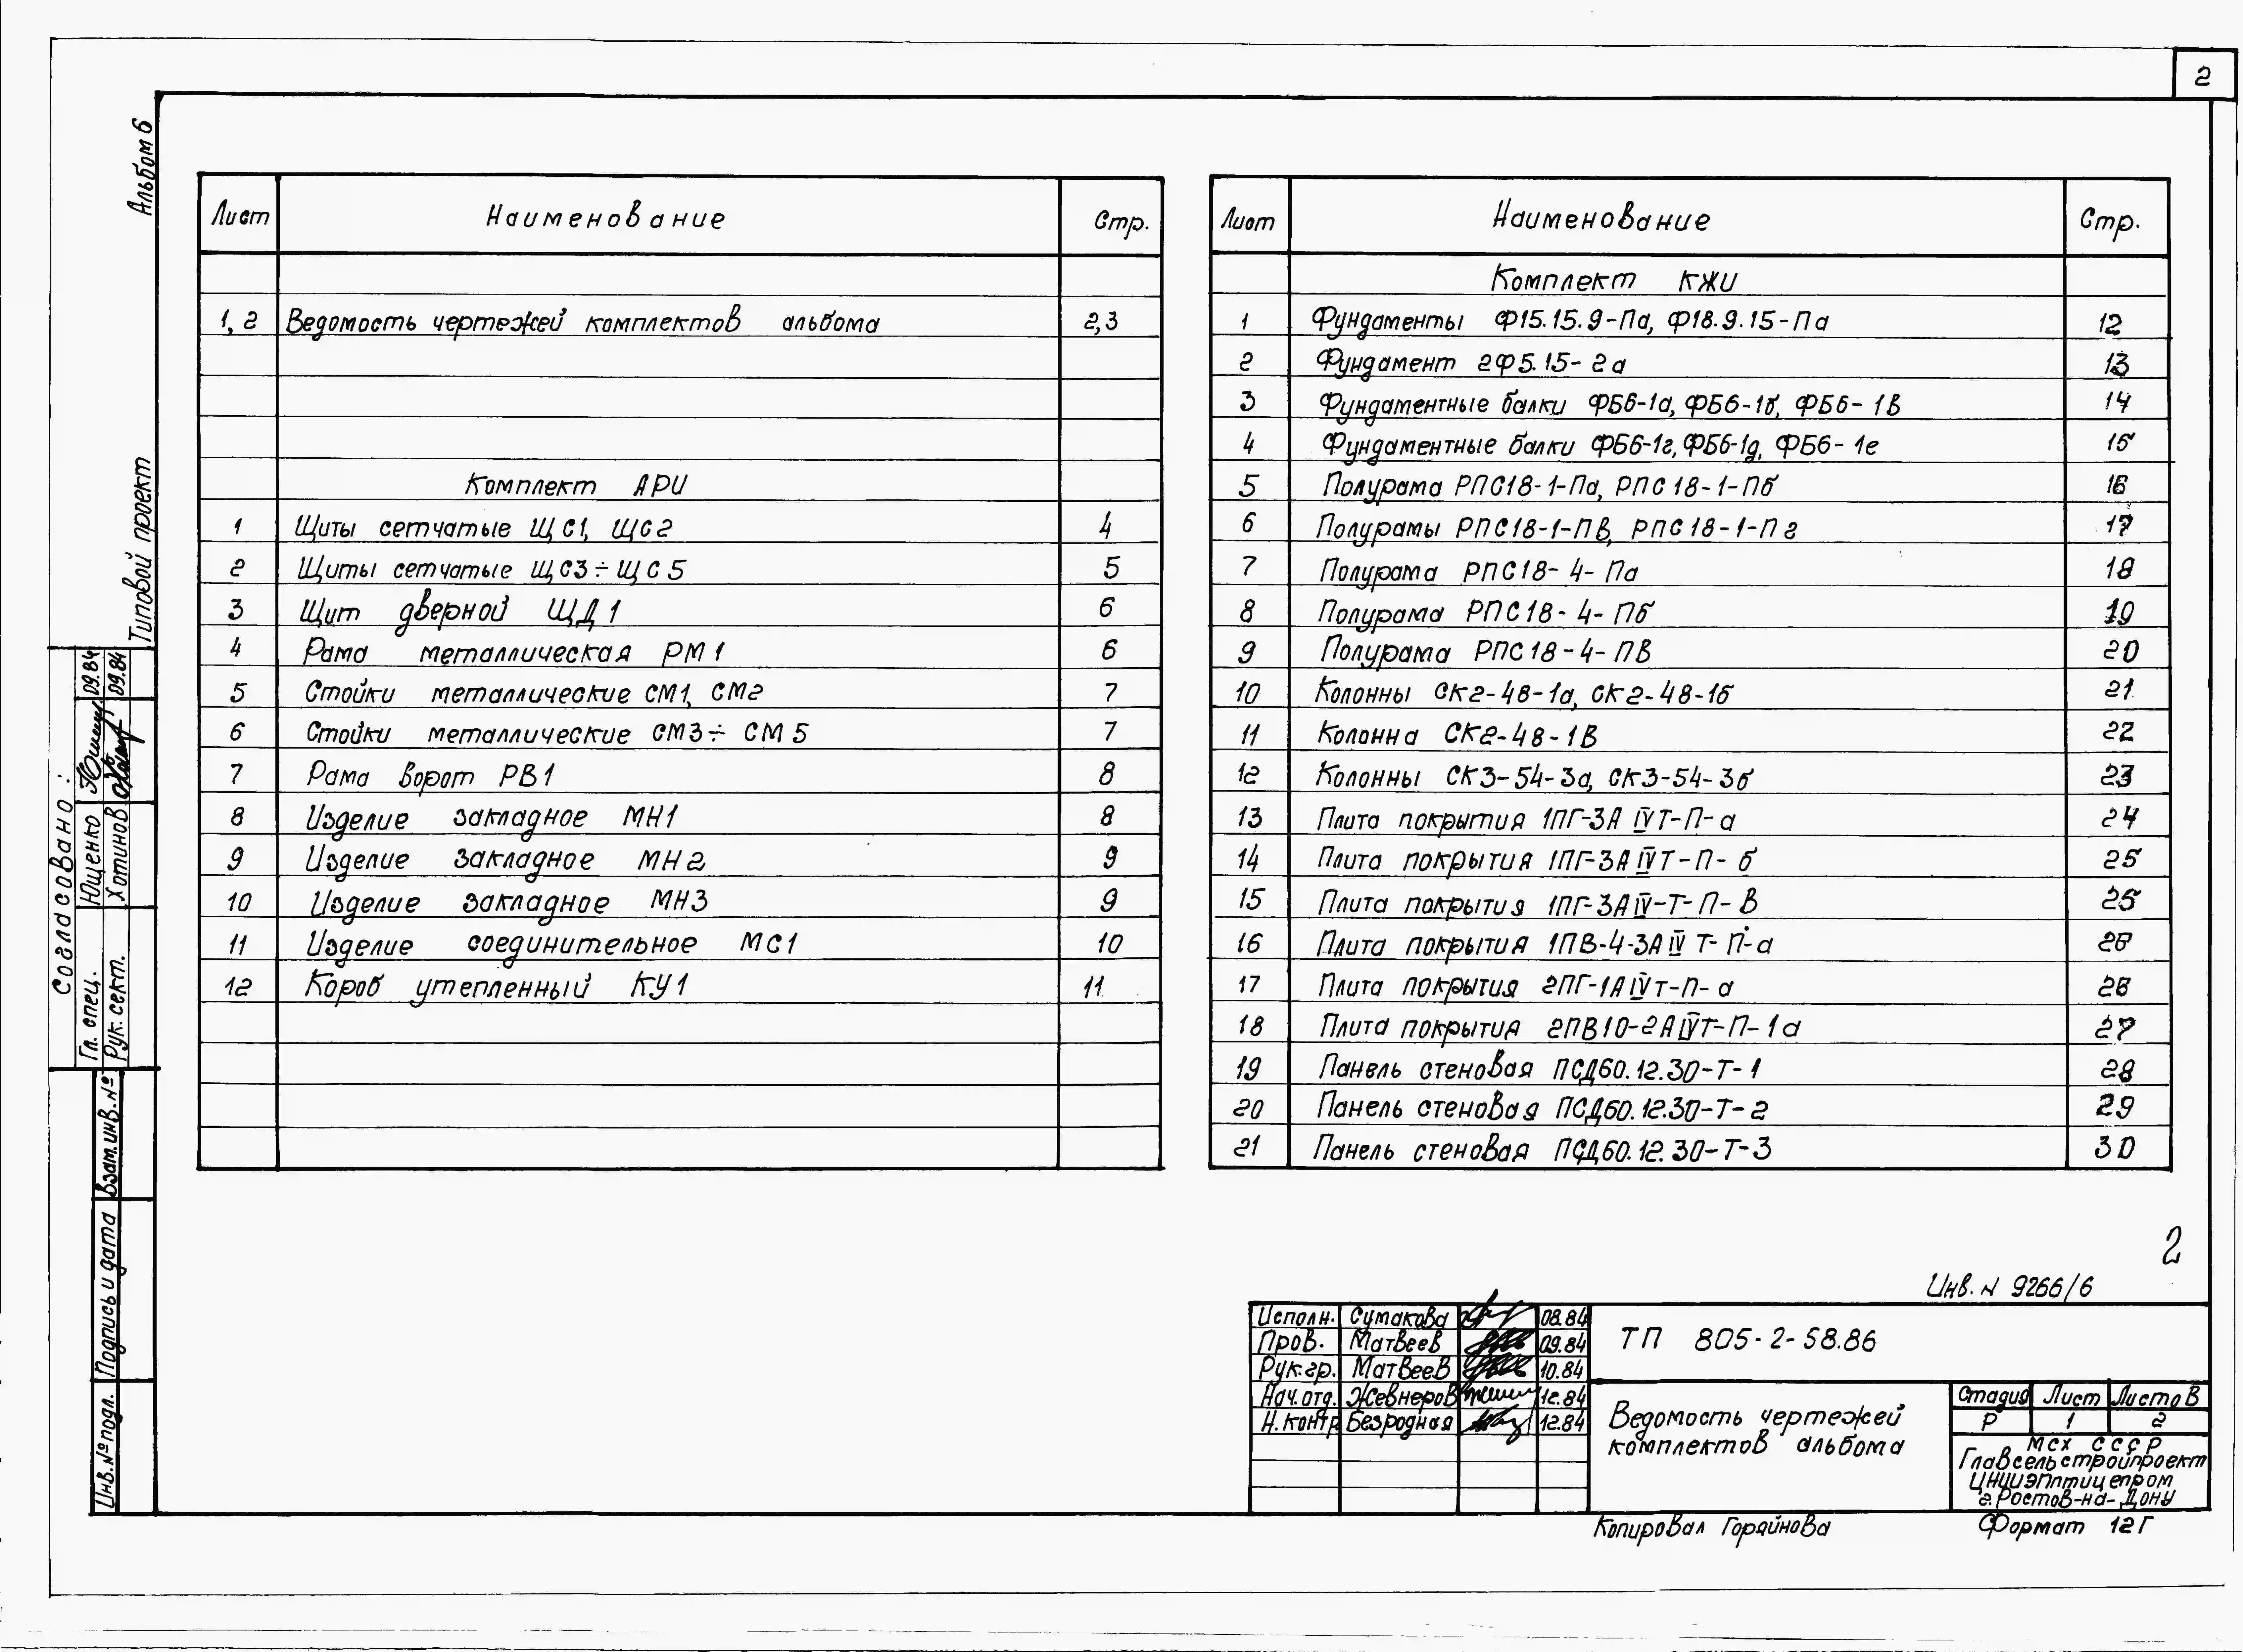 2
Альбом 6
Типовой проект
Согласовано:
Гл. спец. Ющенко 09.84
Рук. сект. Хотинов 09.84
Взам.инв.№
Подпись и дата
Инв.№подл.
Лист Наименование Стр.
1, 2 Ведомость чертежей комплектов альбома 2,3
Комплект АРИ
1 Щиты сетчатые ЩС1, ЩС2 4
2 Щиты сетчатые ЩС3÷ЩС5 5
3 Щит дверной ЩД1 6
4 Рама металлическая РМ1 6
5 Стойки металлические СМ1, СМ2 7
6 Стойки металлические СМ3÷СМ5 7
7 Рама ворот РВ1 8
8 Изделие закладное МН1 8
9 Изделие закладное МН2 9
10 Изделие закладное МН3 9
11 Изделие соединительное МС1 10
12 Короб утепленный КУ1 11
Лист Наименование Стр.
Комплект КЖИ
1 Фундаменты Ф15.15.9-Па, Ф18.9.15-Па 12
2 Фундамент 2Ф5.15-2а 13
3 Фундаментные балки ФБ6-1а, ФБ6-1б, ФБ6-1в 14
4 Фундаментные балки ФБ6-1г, ФБ6-1д, ФБ6-1е 15
5 Полурама РПС18-1-Па, РПС18-1-Пб 16
6 Полурамы РПС18-1-Пв, РПС18-1-Пг 17
7 Полурама РПС18-4-Па 18
8 Полурама РПС18-4-Пб 19
9 Полурама РПС18-4-Пв 20
10 Колонны СК2-48-1а, СК2-48-1б 21
11 Колонна СК2-48-1в 22
12 Колонны СК3-54-3а, СК3-54-3б 23
13 Плита покрытия 1ПГ-3АIVТ-П-а 24
14 Плита покрытия 1ПГ-3АIVТ-П-б 25
15 Плита покрытия 1ПГ-3АIV-Т-П-в 25
16 Плита покрытия 1ПВ-4-3АIVТ-П-а 26
17 Плита покрытия 2ПГ-1АIVТ-П-а 26
18 Плита покрытия 2ПВ10-2АIVТ-П-1а 27
19 Панель стеновая ПСД60.12.30-Т-1 28
20 Панель стеновая ПСД60.12.30-Т-2 29
21 Панель стеновая ПСД60.12.30-Т-3 30
2
Инв. N 9266/6
Исполн. Сумакова 08.84
Пров. Матвеев 09.84
Рук.гр. Матвеев 10.84
Нач.отд. Жевнеров 12.84
Н.контр. Безродная 12.84
ТП 805-2-58.86
Ведомость чертежей
комплектов альбома
Стадия Лист Листов
Р 1 2
МСХ СССР
Главсельстройпроект
ЦНИИЭПптицепром
г.Ростов-на-Дону
Копировал Горяйнова
Формат 12Г